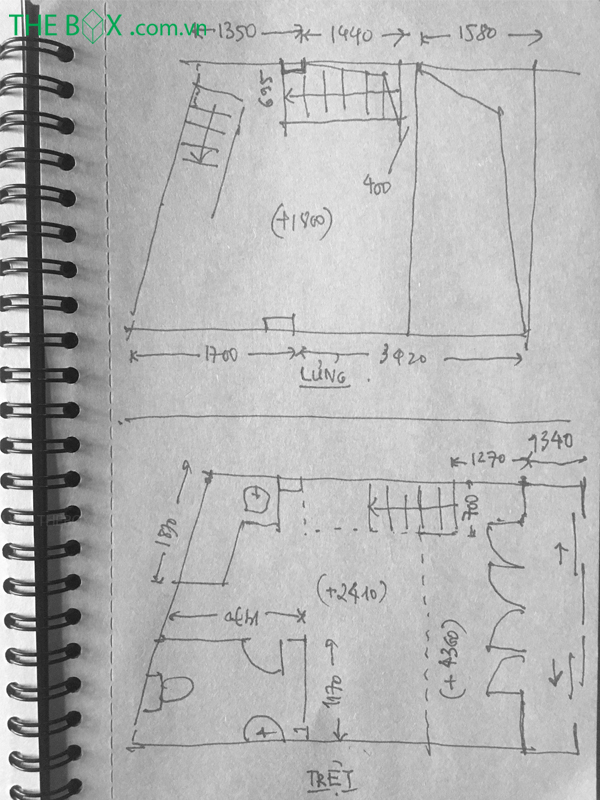 THE BOX.com.vn
1350
1440
1580
695
400
(+1800)
1700
3420
LỬNG
1340
1270
700
1830
(+2410)
(+4360)
1170
TRỆT